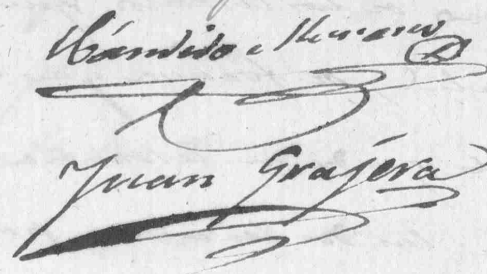 Cándido Moreno
Juan Grajera